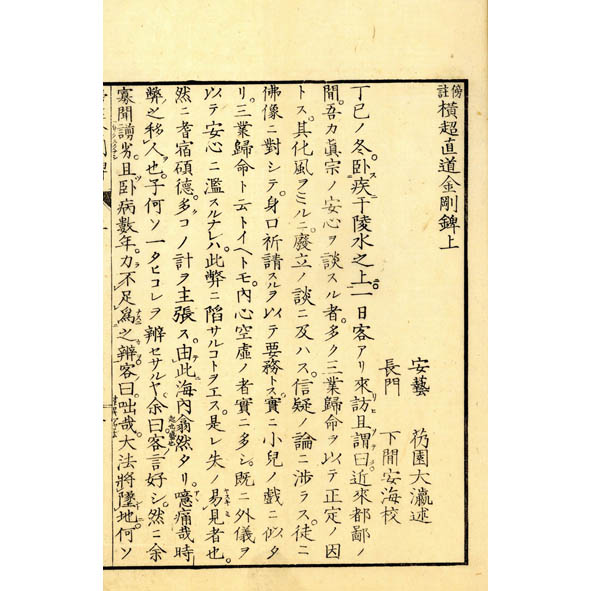 傍註 横超直道金剛錍上
安藝 芿園大瀛述
長門 下間安海校
丁巳ノ冬臥疾于陵水之上一日客アリ來訪且謂曰近來都鄙ノ
間吾カ眞宗ノ安心ヲ談スル者多ク三業歸命ヲ以テ正定ノ因
トス其化風ヲミルニ廢立ノ談ニ及ハス信疑ノ論ニ渉ラス徒ニ
佛像ニ對シテ身口祈請スルヲ以テ要務トス實ニ小兒ノ戲ニ似タ
リ三業歸命ト云トイヘトモ内心空虚ノ者實ニ多シ既ニ外儀ヲ
以テ安心ニ濫スルナレハ此弊ニ陷サルコトヲエス是レ失ノ易見者也
然ニ耆宿碩德多クコノ計ヲ主張ス由此海内翕然タリ噫痛哉時
弊之移人也子何ソ一タヒコレヲ辨セサルヤ余曰客言好シ然ニ余
寡聞謭劣且臥病數年力不足爲之辨客曰咄哉大法將墜地何ソ